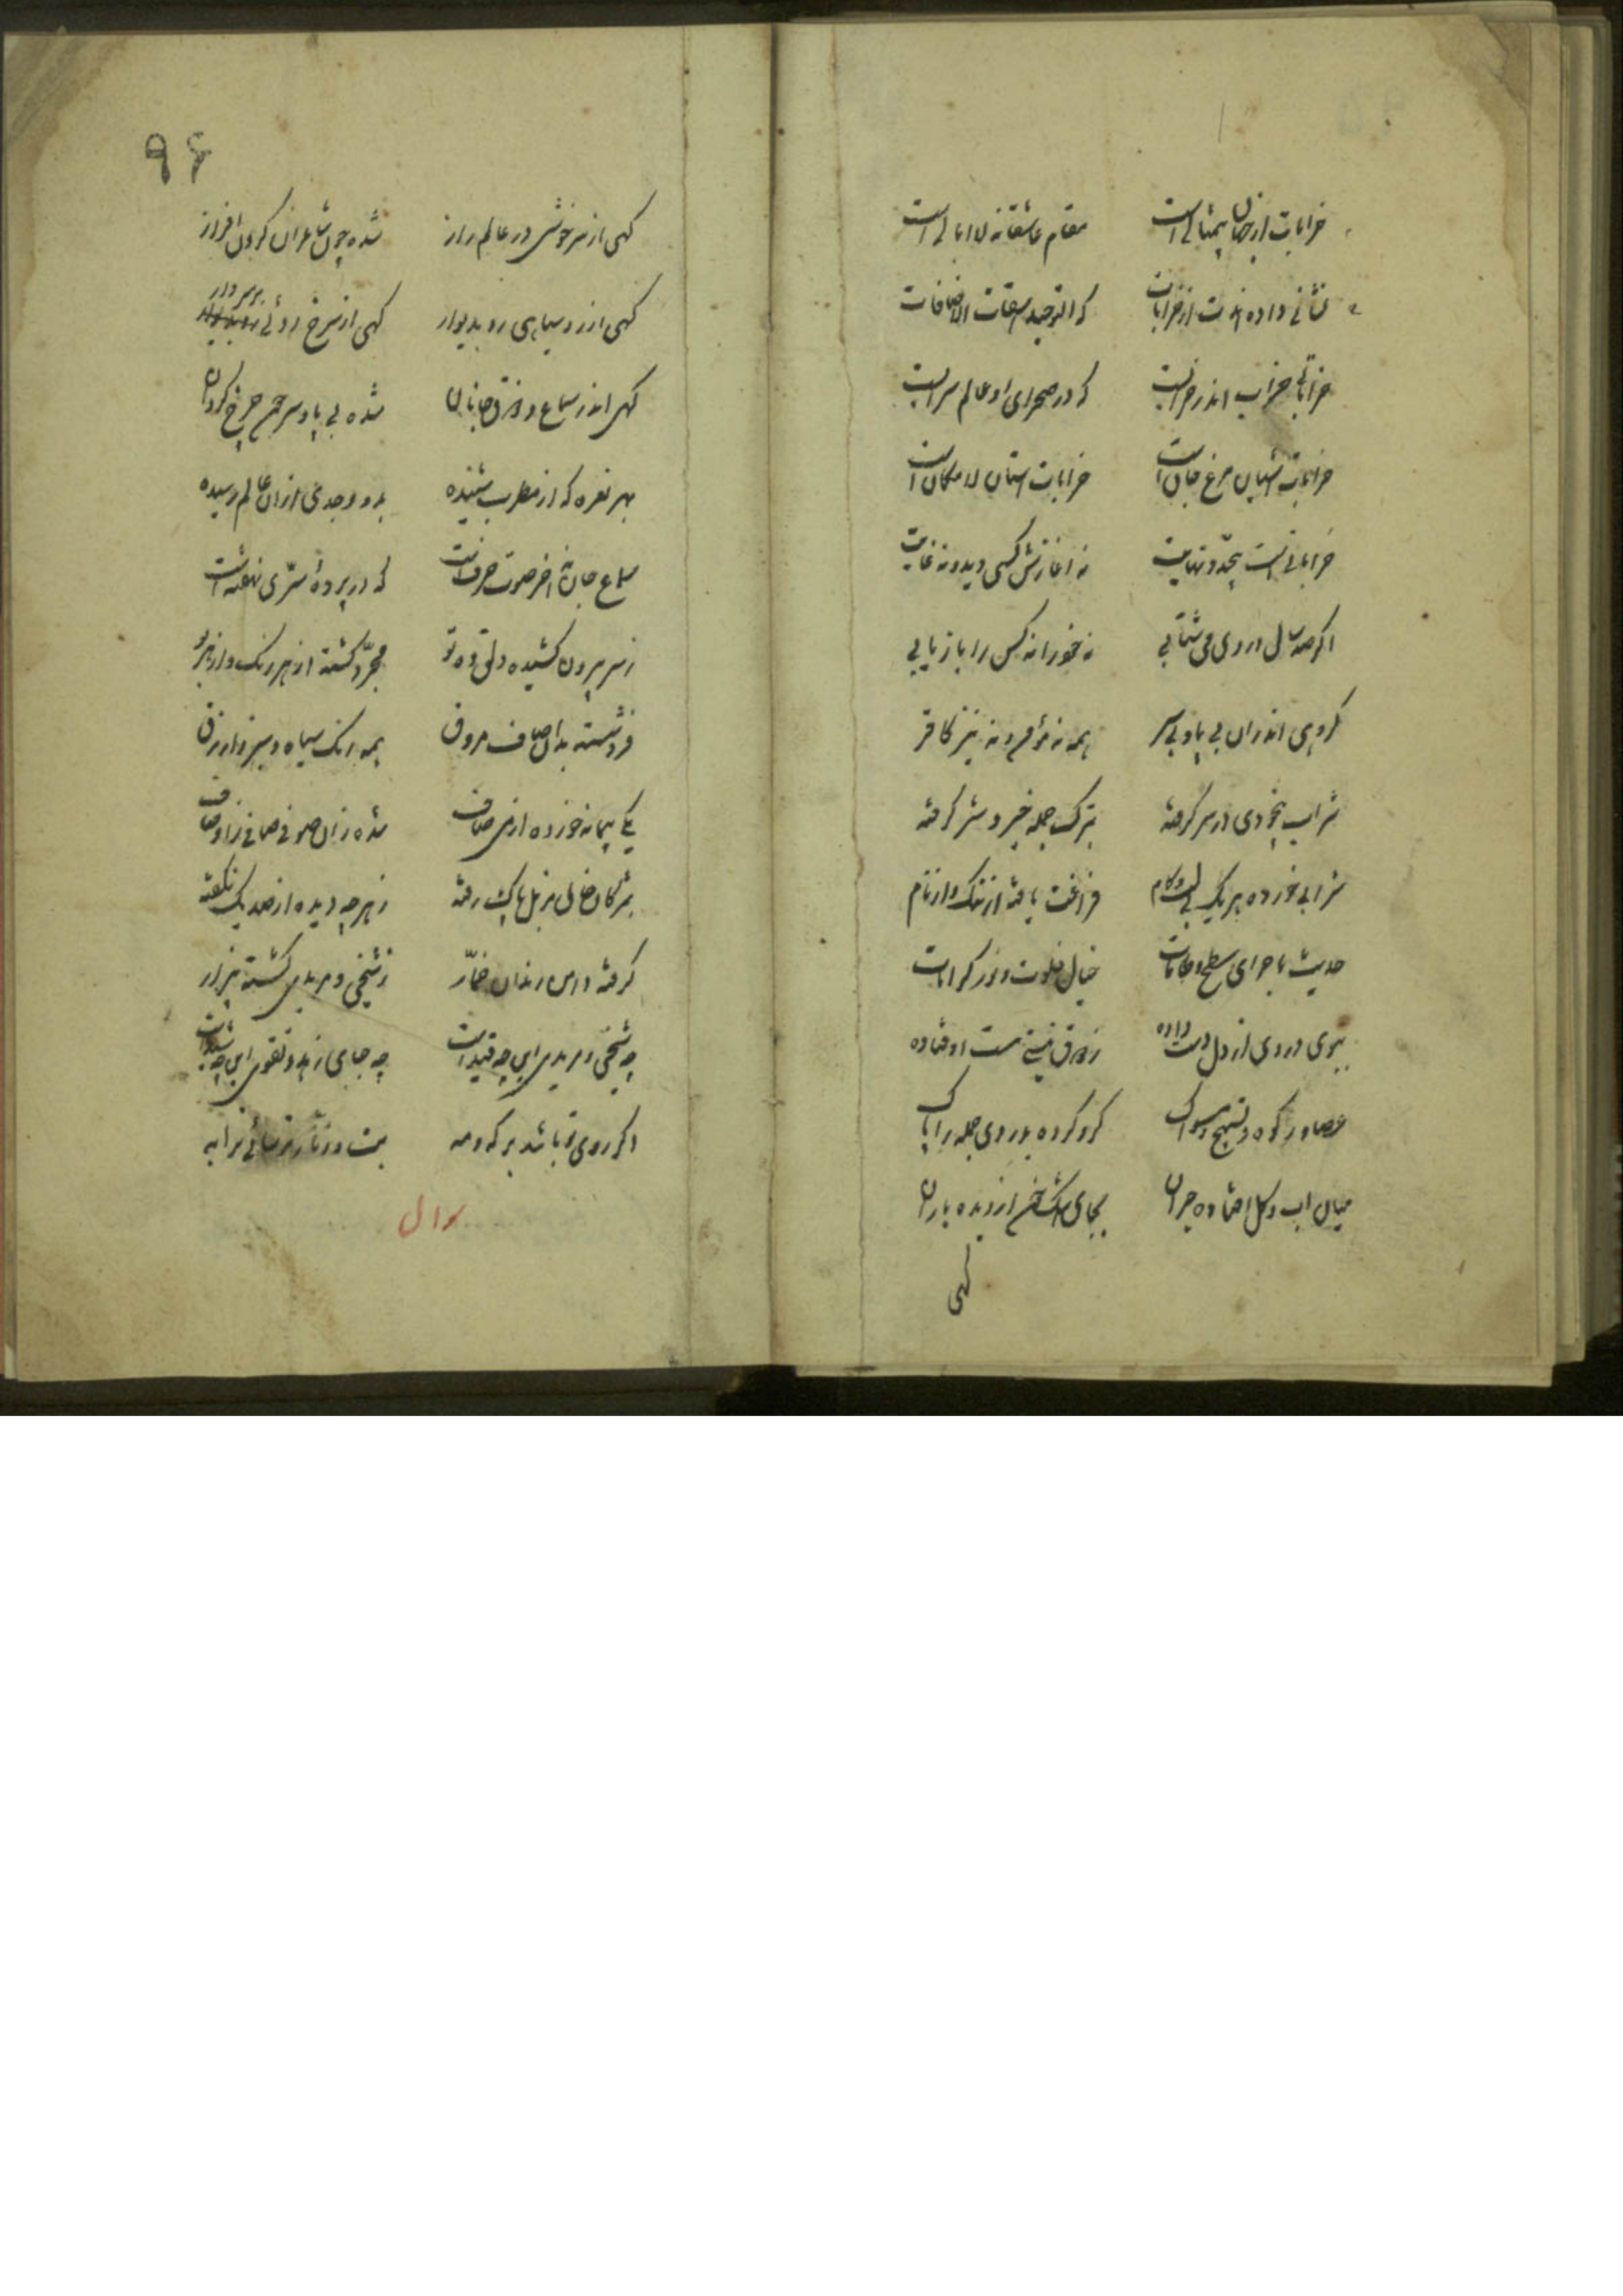 خرابات از جهان بیمثالی است مقام عاشقان لاابالی است
نشانی داده اندت از خرابات که التوحید اسقاط الاضافات
خراباتی خراب اندر خرابست که در صحرای او عالم سرابست
خرابات آشیان مرغ جان است خرابات استان لامکان است
خراباتیست بیحد و نهایت نه اغازش کسی دیده نه غایت
اکر صد سال در وی می شتابی نه خود را نه کس را باز یابی
کروهی اندران بی پا و بی سر همه نه مؤمن و نه نیز کافر
شراب بیخودی در سر کرفته بترک جمله خیر و شر کرفته
شرابی خورده هر یک بی لب و کام فراغت یافته از ننک و از نام
حدیث ماجرای شطح و طامات خیال خلوت و نور کرامات
ببوی دردی از دل دست داده ز ذوق نیستی مست اوفتاده
عصا و رکوه و تسبیح و مسواک کرو کرده بدردی جمله را پاک
میان اب و کل افتاده حیران بجای اشک خون از دیده باران
کهی
۹۶
کهی از سرخوشی در عالم راز شده چون شاطران کردن افراز
کهی از رو سیاهی رو بدیوار کهی از سرخ روئی بر سر دار
کهی اندر سماع و ذوق جانان شده بی پا و سر چون چرخ کردان
بهر نغمه که از مطرب شنیده بدو وجدی از ان عالم رسیده
سماع جان نه اخر صوت حرفست که در پرده سری نهفته است
ز سر بیرون کشیده دلق ده تو مجرد کشته از هر رنک و از هر بو
فرو شسته بدان صاف مروق همه رنک سیاه و سبز و ازرق
یکی پیمانه خورده از می صاف شده زان صوفی صافی ز اوصاف
بمژکان خاک مزبل پاک رفته ز هر چه دیده از صد یک نکفته
کرفته دامن رندان خمار ز شیخی و مریدی کشته بیزار
چه شیخی و مریدی این چه قیداست چه جای زهد و تقوی این چه شیداست
اکر روی تو باشد بر که و مه بت و زنار و ترسائی ترا به
سوال